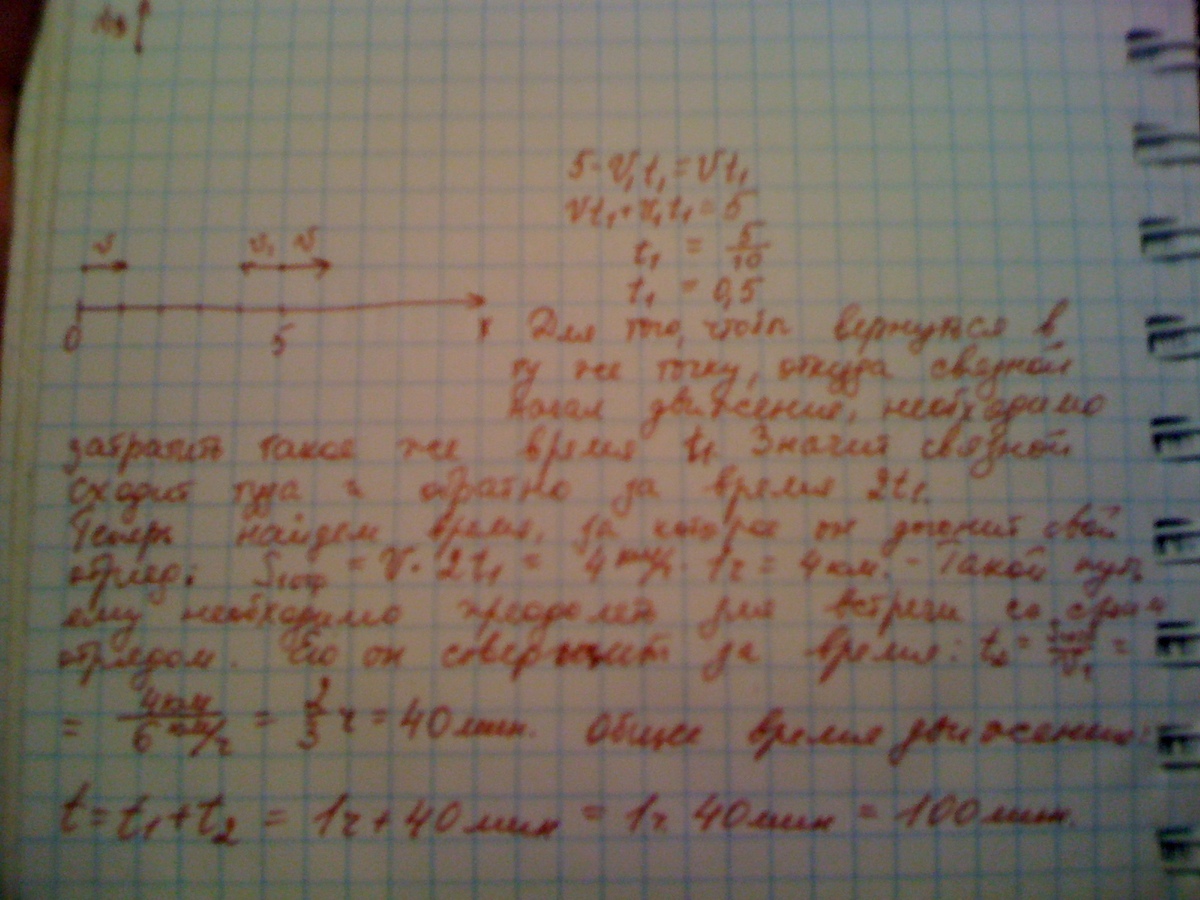 5-V₁t₁=Vt₁
Vt₁+V₁t₁=5
t₁ = 5/10
t₁ = 0,5
V
V₁ V
0
5
x
Для того, чтобы вернуться в
ту же точку, откуда связной
начал движение, необходимо
затратить такое же время t₁. Значит связной
сходит туда и обратно за время 2t₁.
Теперь найдем время, за которое он догонит свой
отряд: = V·2t₁ = 4 км/ч · 1ч = 4 км. - Такой путь
ему необходимо преодолеть для встречи со своим
отрядом. Его он совершит за время: t₂ = =
= 4км/6 км/ч = 2/3 ч = 40 мин. Общее время движения:
t = t₁+t₂ = 1ч+40 мин = 1ч 40 мин = 100 мин.